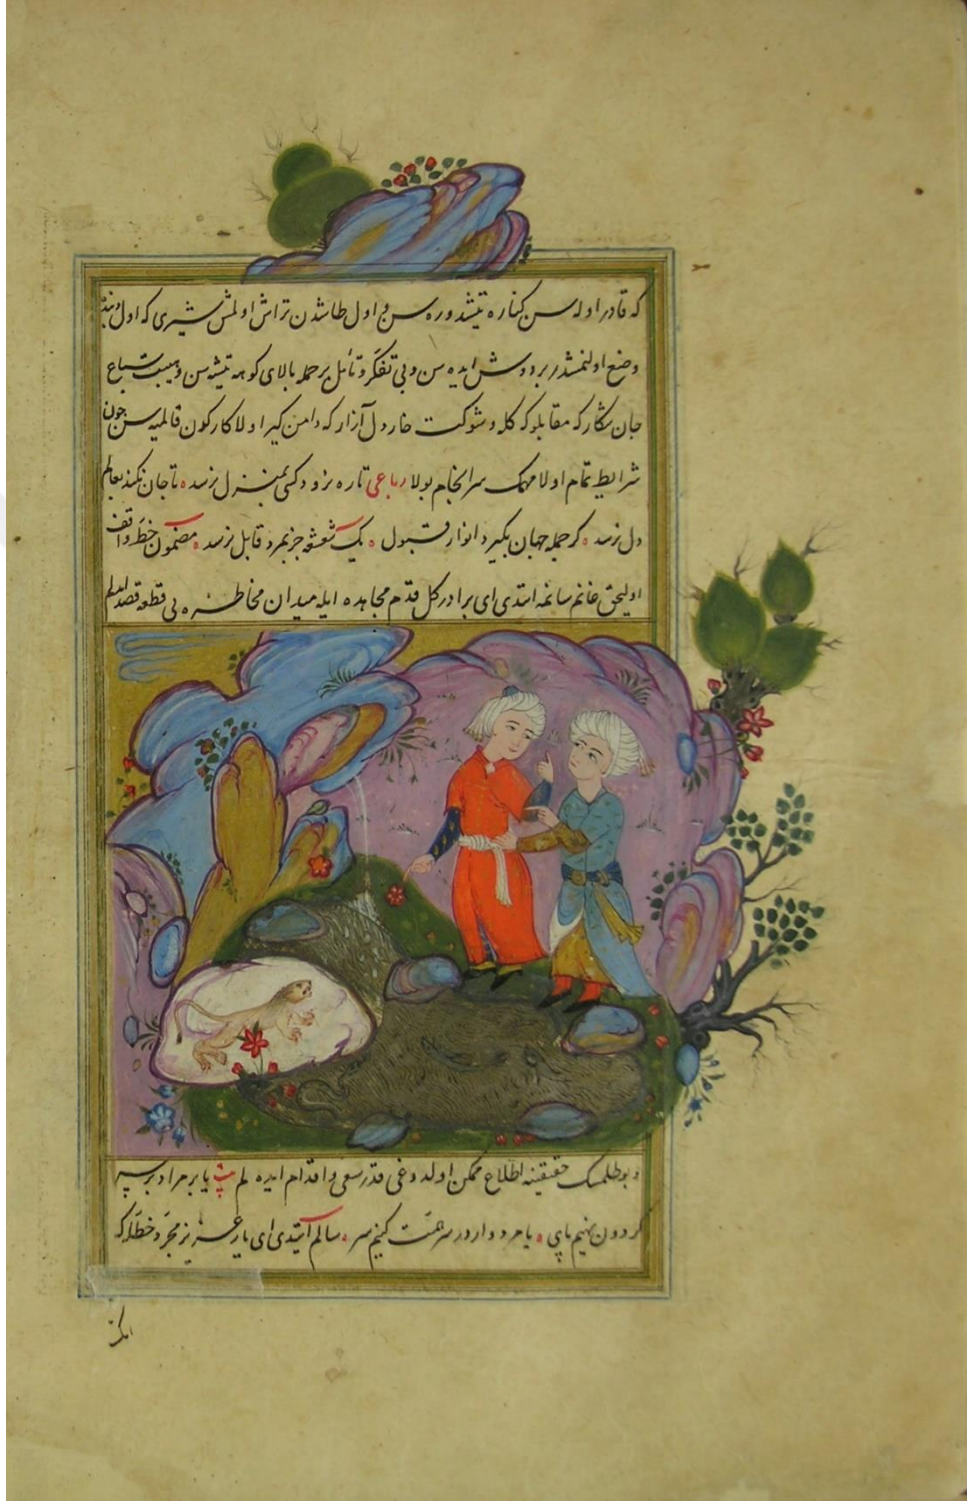 که قادر اوله سن کناره یتیشدوره سن و اول طاشدن تراش اولمش شیری که اول
وضع اولنمشدر بر دوش ایده سن و بی تفکر و تأمل بر حمله بالای کوهه یتیشه سن و هیبت سباع
جان شکار که مقابلو که کله و شوکت خار دل آزار که دامن کیر اولا کارکون قالمیه سن چون
شرایط تمام اولا مهمک سرانجام بولا رباعی تا ره نرود کسی بمنزل نرسد تا جان نکند بعالم
دل نرسد کر جمله جهان بگیرد انوار قبول یک شعشعه جز بمرد قابل نرسد مضمون خطه واقف
اولیجق غانم سالمه ایتدی ای برادر کل قدم مجاهده ایله میدان مخاطره یی قطعه قصد ایدلم
و بو طلسمک حقیقتنه اطلاع ممکن اولدوغی قدر سعی و اقدام ایده لم بیت یا بر مراد بر سر
کردون نهیم پای یا مردوار در سر همت کنیم سر سالم ایتدی ای یار عزیز مجرد خطله که